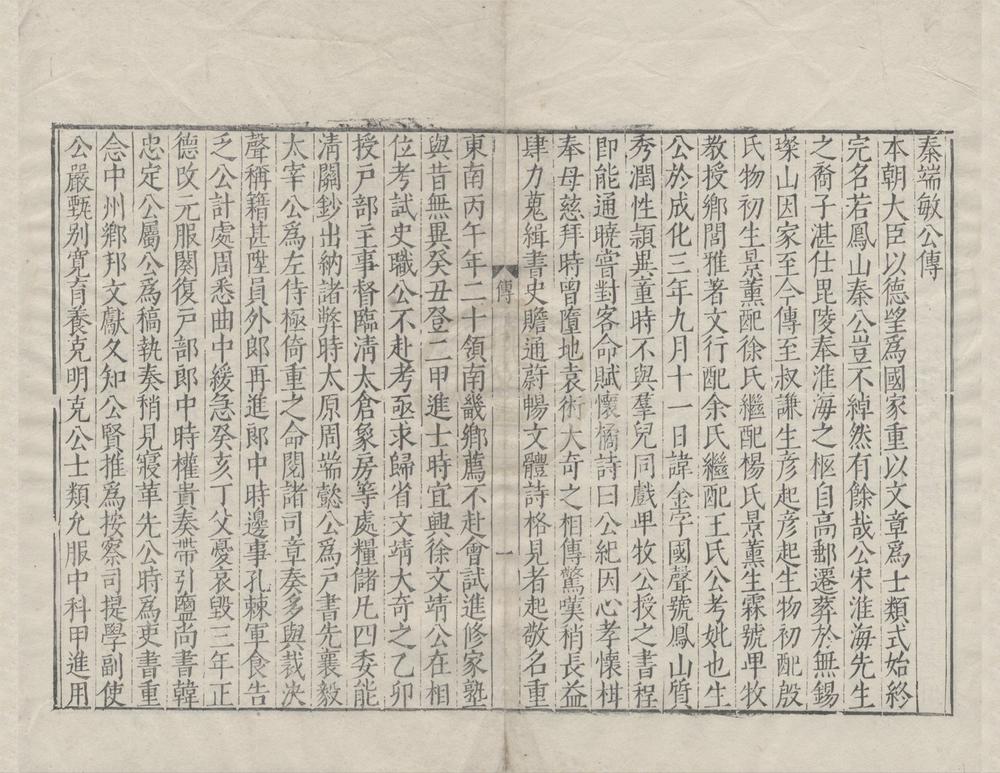 秦端敏公傳
本朝大臣以德望爲國家重以文章爲士類式始終
完名若鳳山秦公豈不綽然有餘哉公宋淮海先生
之裔子湛仕毘陵奉淮海之柩自高郵遷葬於無錫
璨山因家至今傳至叔謙生彦起彦起生物初配殷
氏物初生景薰配徐氏繼配楊氏景薰生霖號卑牧
教授鄉閭雅著文行配余氏繼配王氏公考妣也生
公於成化三年九月十一日諱金字國聲號鳳山質
秀潤性頴異童時不與羣兒同戲卑牧公授之書程
即能通曉嘗對客命賦懷橘詩曰公紀因心孝懷柑
奉母慈拜時曾墮地袁術大奇之相傳驚嘆稍長益
肆力蒐緝書史贍通蔚暢文體詩格見者起敬名重
傳
一
東南丙午年二十領南畿鄉薦不赴會試進修家塾
與昔無異癸丑登二甲進士時宜興徐文靖公在相
位考試史職公不赴考亟求歸省文靖大奇之乙卯
授戸部主事督臨淸太倉象房等處糧儲凡四委能
淸關鈔出納諸弊時太原周端懿公爲戸書先襄毅
太宰公爲左侍極倚重之命閱諸司章奏多與裁决
聲稱籍甚陞員外郎再進郎中時邊事孔棘軍食告
乏公計處周悉曲中緩急癸亥丁父憂哀毀三年正
德改元服闋復戸部郎中時權貴奏帶引鹽尚書韓
忠定公屬公爲稿執奏稍見寢革先公時爲吏書重
念中州鄉邦文獻夂知公賢推爲按察司提學副使
公嚴甄别寛育養克明克公士類允服中科甲進用